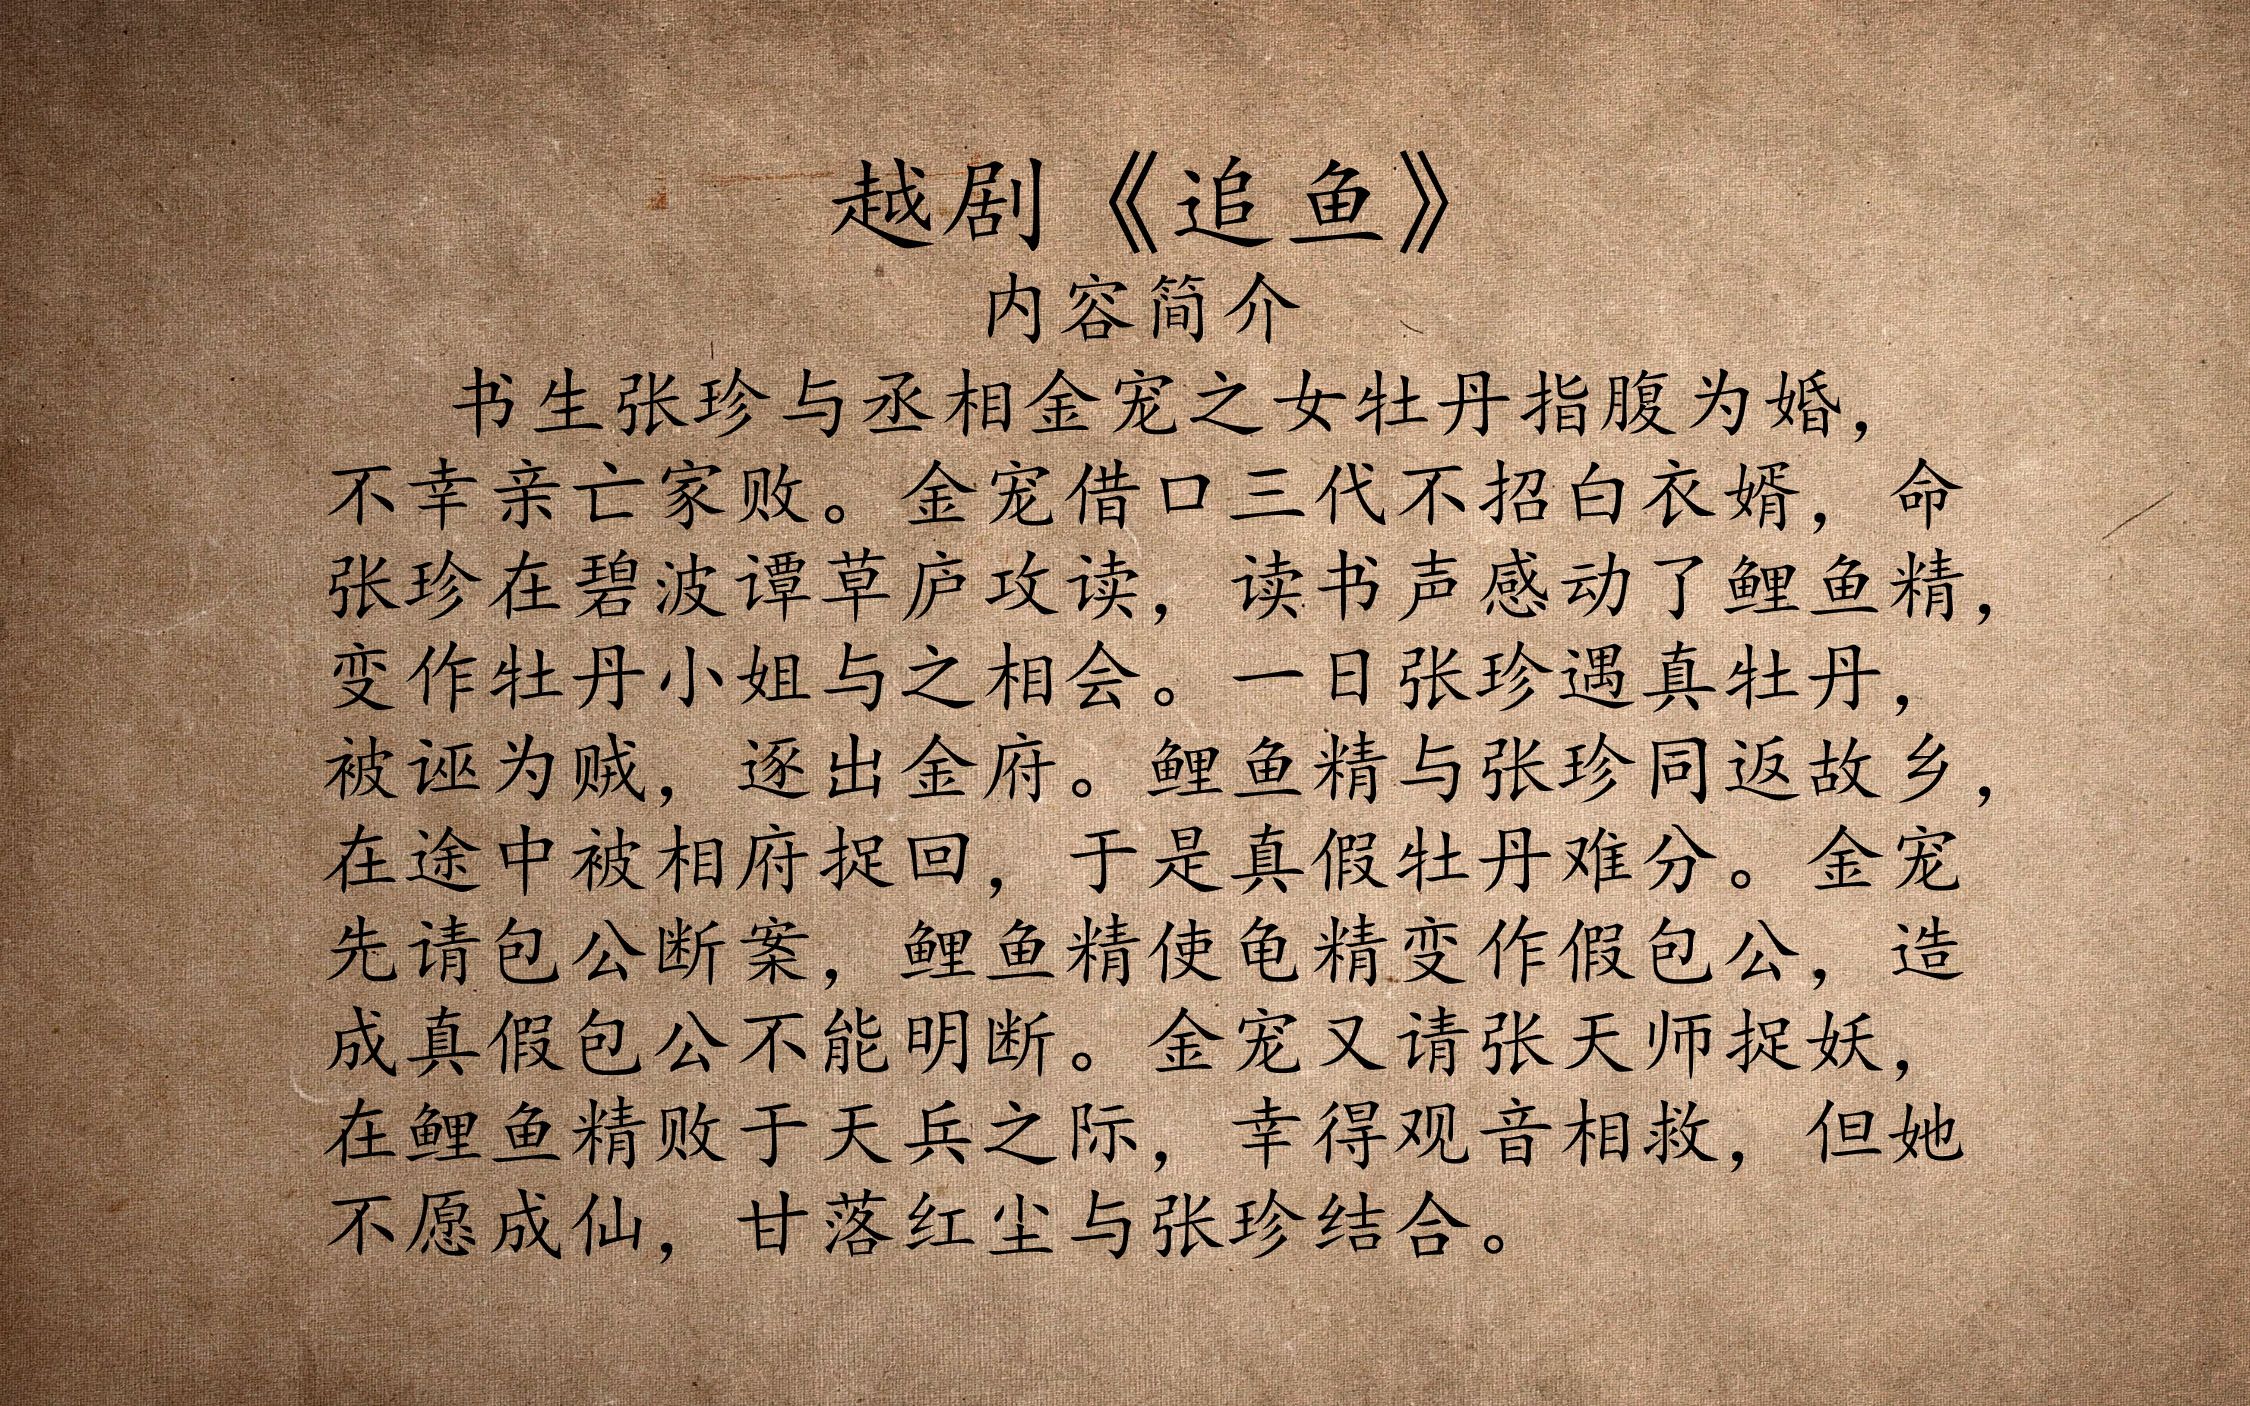 越剧《追鱼》
内容简介
书生张珍与丞相金宠之女牡丹指腹为婚，
不幸亲亡家败。金宠借口三代不招白衣婿，命
张珍在碧波谭草庐攻读，读书声感动了鲤鱼精，
变作牡丹小姐与之相会。一日张珍遇真牡丹，
被诬为贼，逐出金府。鲤鱼精与张珍同返故乡，
在途中被相府捉回，于是真假牡丹难分。金宠
先请包公断案，鲤鱼精使龟精变作假包公，造
成真假包公不能明断。金宠又请张天师捉妖，
在鲤鱼精败于天兵之际，幸得观音相救，但她
不愿成仙，甘落红尘与张珍结合。